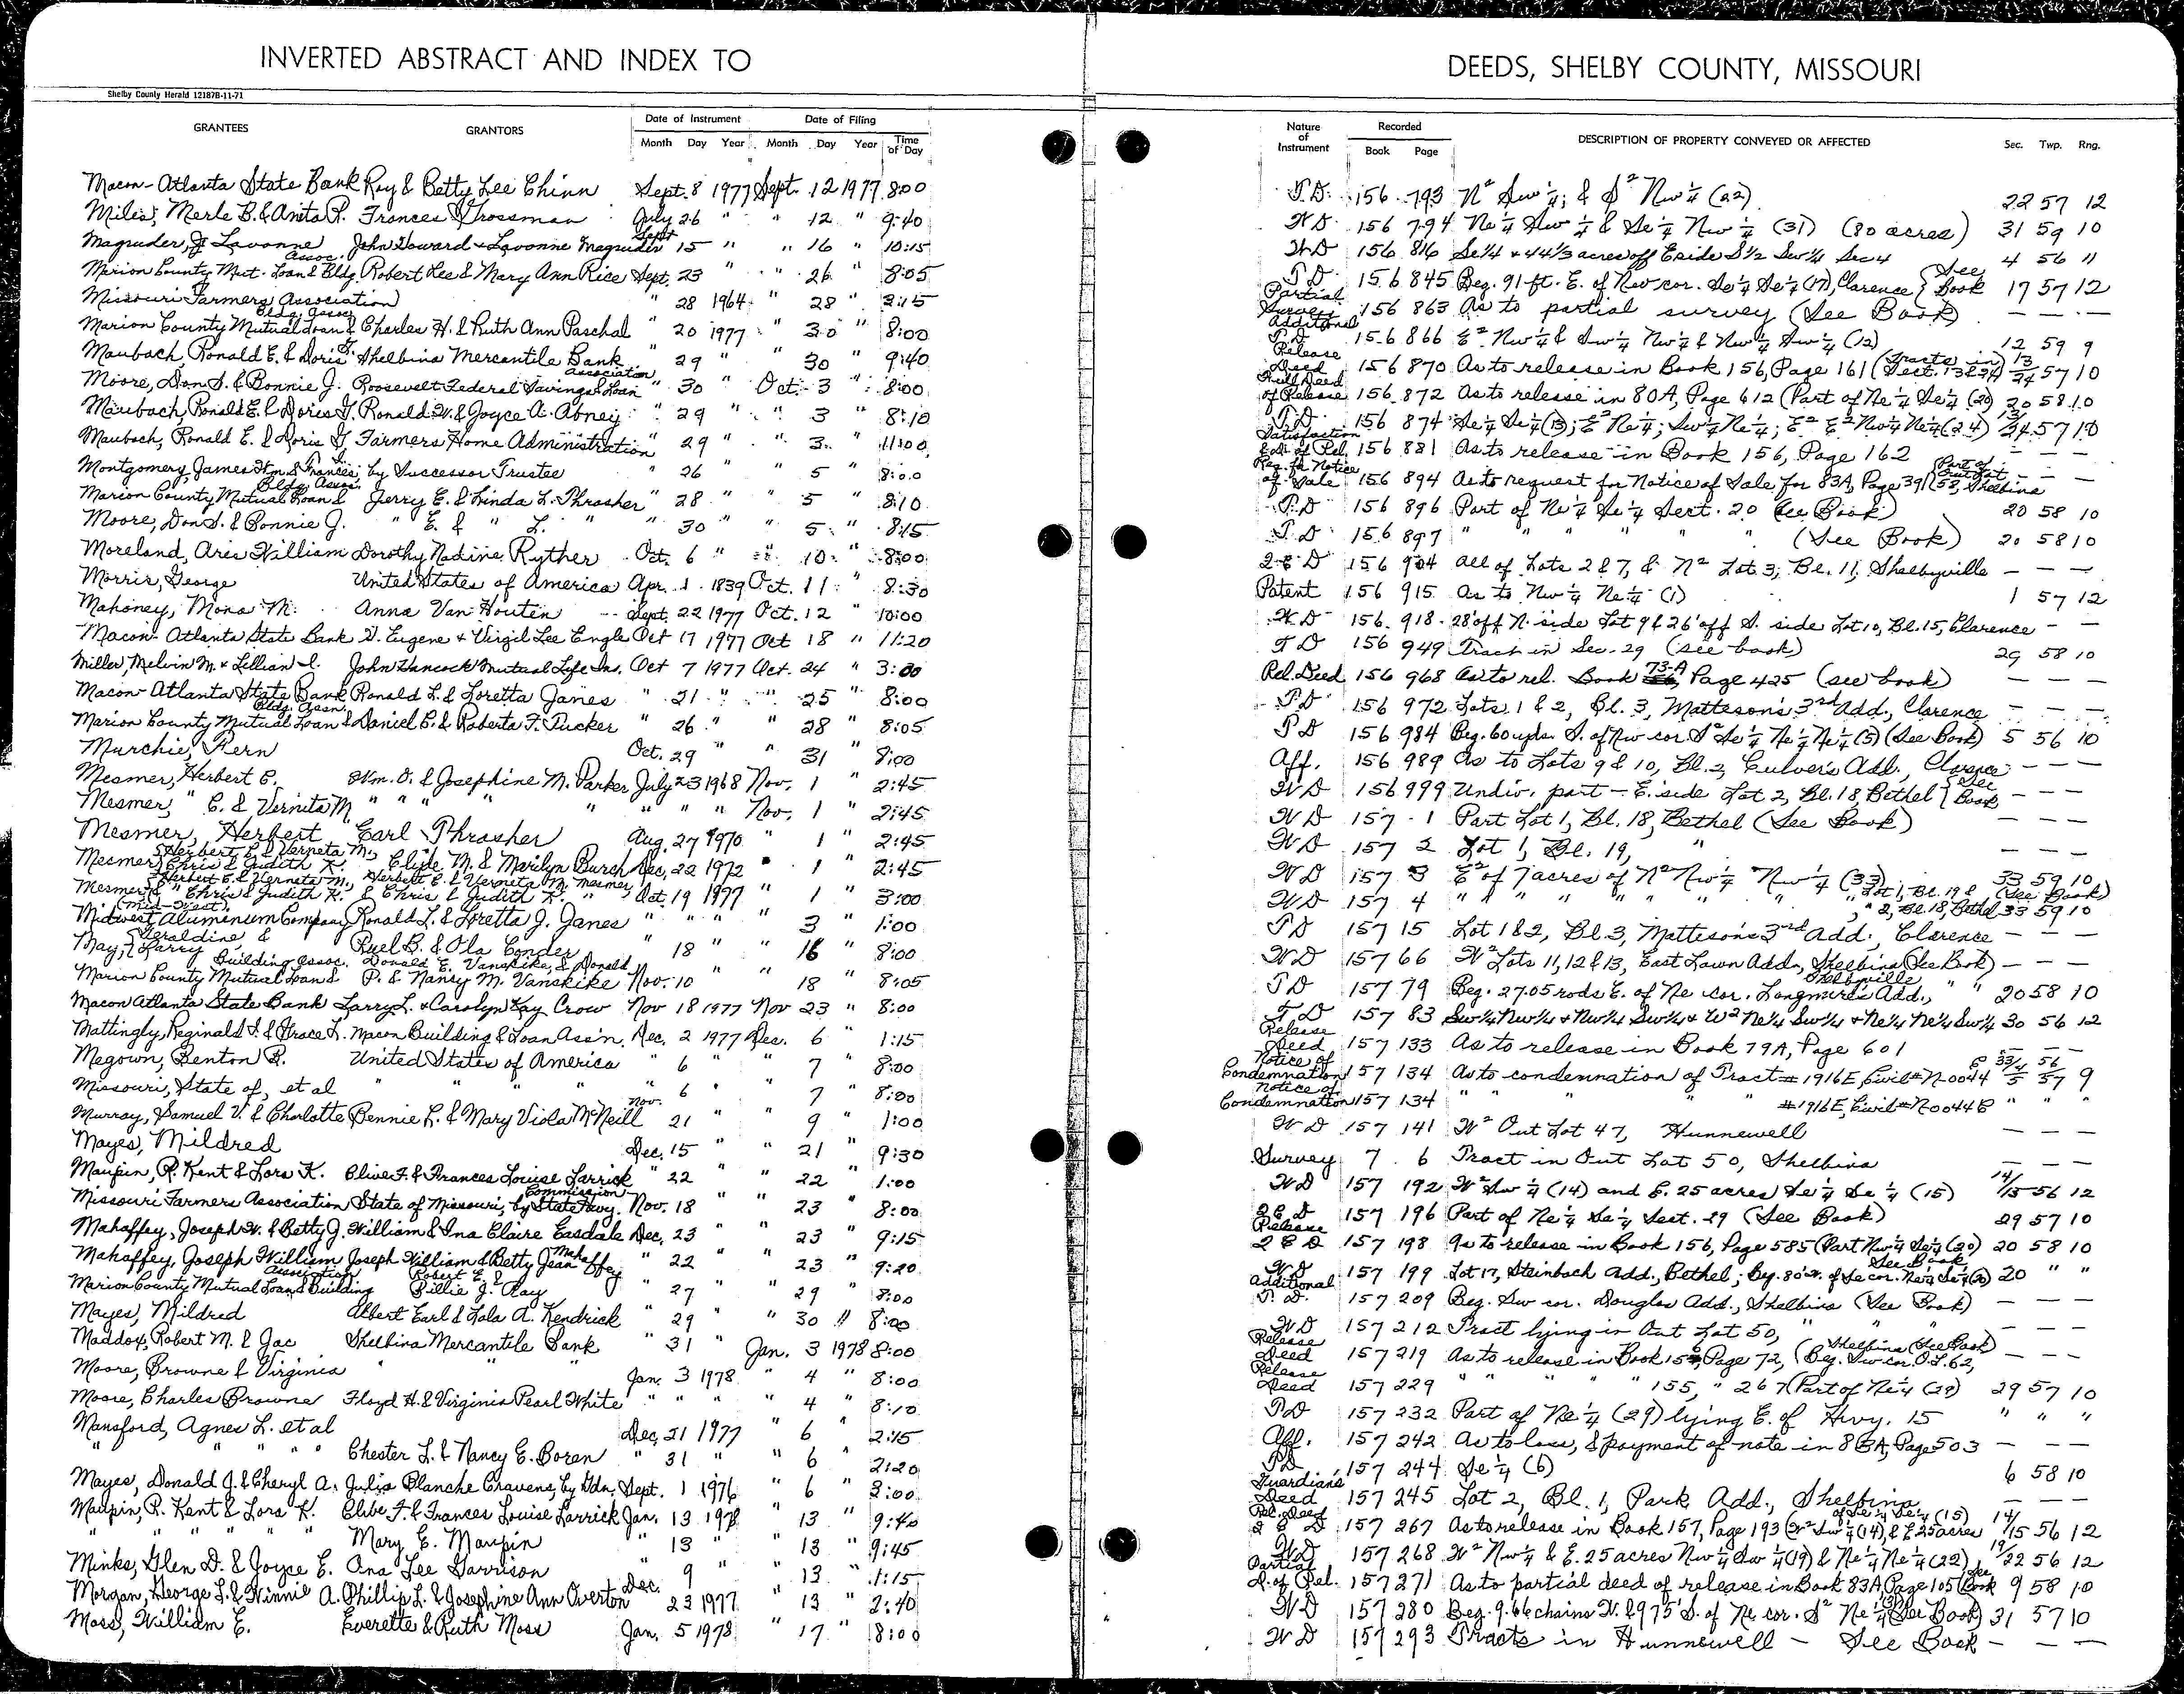 INVERTED ABSTRACT AND INDEX TO
DEEDS, SHELBY COUNTY, MISSOURI
Shelby County Herald 12187B-11-71
GRANTEES GRANTORS Date of Instrument Date of Filing Time of Day
Month Day Year Month Day Year
Nature of Instrument Recorded DESCRIPTION OF PROPERTY CONVEYED OR AFFECTED Sec. Twp. Rng.
Book Page
Macon-Atlanta State Bank Roy & Betty Lee Chinn Sept. 8 1977 Sept. 12 1977 8:00
Miles, Merle B. & Anita R. Frances Grossman July 26 " " 12 " 9:40
Magruder, J. Lavonne John Howard & Lavonne Magruder Sept 15 " " 16 " 10:15
Marion County Mut. Loan & Bldg. Assoc. Robert Lee & Mary Ann Rice Sept. 23 " " 26 " 8:05
Missouri Farmers Association " 28 1964 " 28 " 2:15
Marion County Mutual Loan & Bldg. Assoc. Charles H. & Ruth Ann Paschal " 20 1977 " 30 " 8:00
Maubach, Ronald E. & Doris G. Shelbina Mercantile Bank " 29 " " 30 " 9:40
Moore, Don S. & Bonnie J. Roosevelt Federal Savings & Loan Association " 30 " Oct. 3 " 8:00
Maubach, Ronald E. & Doris G. Ronald W. & Joyce A. Abney " 29 " " 3 " 8:10
Maubach, Ronald E. & Doris G. Farmers Home Administration " 29 " " 3 " 11:00
Montgomery, James Wm. & Frances; by Successor Trustee " 26 " 5 " 8:00
Marion County Mutual Loan & Bldg. Assoc. Jerry E. & Linda L. Thrasher " 28 " " 5 " 8:10
Moore, Don S. & Bonnie J. " E. & " L. " " 30 " " 5 " 8:15
Moreland, Aris William Dorothy Nadine Ryther Oct. 6 " " 10 " 8:00
Morris, George United States of America Apr. 1 1839 Oct. 11 " 8:30
Mahoney, Mona M. Anna Van Houten Sept. 22 1977 Oct. 12 " 10:00
Macon-Atlanta State Bank V. Eugene & Virgil Lee Engle Oct 17 1977 Oct 18 " 11:20
Miller, Melvin M. & Lillian I. John Hancock Mutual Life Ins. Oct 7 1977 Oct. 24 " 3:00
Macon-Atlanta State Bank Ronald L. & Loretta James " 21 " " 25 " 8:00
Marion County Mutual Loan & Bldg. Assn. Daniel C. & Roberta F. Tucker " 26 " " 28 " 8:05
Murchie, Fern Oct. 29 " " 31 " 8:00
Mesmer, Herbert E. Wm. O. & Josephine M. Parker July 23 1968 Nov. 1 " 2:45
Mesmer, " E. & Vernita M. " " " " " " " Nov. 1 " 2:45
Mesmer, Herbert Earl Thrasher Aug. 27 1970 " 1 " 2:45
Mesmer, Herbert E. & Verneta M., Chris & Judith K. Clyde M. & Marilyn Burch Dec. 22 1972 " 1 " 2:45
Mesmer, Herbert E. & Verneta M., & " Chris & Judith K. Herbert E. & Verneta M. Mesmer, & Chris & Judith K. " Oct. 19 1977 " 1 " 3:00
Midwest Aluminum Company (Mid-West) Ronald L. & Loretta J. Janes " " " " 3 " 1:00
May, Geraldine, & Larry Ruel B. & Ola Conder " 18 " " 16 " 8:00
Marion County Mutual Loan & Building Assoc. Donald E. Vanskike, & Donald P. & Nancy M. Vanskike Nov. 10 " " 18 " 8:05
Macon Atlanta State Bank Larry L. & Carolyn Kay Crow Nov 18 1977 Nov 23 " 8:00
Mattingly, Reginald I. & Grace L. Macon Building & Loan Ass'n. Dec. 2 1977 Dec. 6 " 1:15
Megown, Benton R. United States of America " 6 " " 7 " 8:00
Missouri, State of, et al " " " " " 6 " " 7 " 8:00
Murray, Samuel V. & Charlotte Bennie L. & Mary Viola McNeill Nov. 21 " " 9 " 1:00
Mayes, Mildred Dec. 15 " " 21 " 9:30
Maupin, R. Kent & Lora K. Clive F. & Frances Louise Larrick " 22 " " 22 " 1:00
Missouri Farmers Association State of Missouri, by State Hwy. Commission Nov. 18 " " 23 " 8:00
Mahaffey, Joseph W. & Betty J. William & Ina Claire Easdale Dec. 23 " " 23 " 9:15
Mahaffey, Joseph William Joseph William & Betty Jean Mahaffey " 22 " " 23 " 9:20
Marion County Mutual Loan & Building Association Robert E. & Billie J. Ray " 27 " " 29 " 8:00
Mayes, Mildred Albert Earl & Lola A. Kendrick " 29 " " 30 " 8:00
Maddox, Robert M. & Jac Shelbina Mercantile Bank " 31 " Jan. 3 1978 8:00
Moore, Browne & Virginia " " " Jan. 3 1978 " 4 " 8:00
Moore, Charles Browne Floyd H. & Virginia Pearl White " " " " 4 " 8:10
Mansford, Agnes L. et al Dec. 21 1977 " 6 " 2:15
" " " " " Chester L. & Nancy E. Boren " 31 " " 6 " 2:20
Mayes, Donald J. & Cheryl A. Julia Blanche Cravens, by Gdn. Sept. 1 1976 " 6 " 3:00
Maupin, R. Kent & Lora K. Clive F. & Frances Louise Larrick Jan. 13 1978 " 13 " 9:40
" " " " " Mary E. Maupin " 13 " " 13 " 9:45
Minks, Glen D. & Joyce E. Ona Lee Garrison " 9 " " 13 " 1:15
Morgan, George L. & Winnie A. Phillip L. & Josephine Ann Overton Dec. 23 1977 " 13 " 2:40
Moss, William E. Everette & Ruth Moss Jan. 5 1978 " 17 " 8:00
T.D. 156 793 N² Sw¼; & S² Nw¼ (22) 22 57 12
W D 156 794 Ne¼ Sw¼ & Se¼ Nw¼ (31) (80 acres) 31 59 10
WD 156 816 Se¼ & 44⅓ acres off E side S½ Sw¼ Sec 4 4 56 11
T.D. 156 845 Beg. 91 ft. E. of Nw cor. Se¼ Se¼ (17), Clarence {See Book 17 57 12
Partial Survey 156 863 As to partial survey (See Book) — — —
Additional T.D. 156 866 E² Nw¼ & Sw¼ Nw¼ & Nw¼ Sw¼ (12) 12 59 9
Release Deed 156 870 As to release in Book 156, Page 161 (Tracts in Sect. 13 & 24) 13/24 57 10
Full Deed of Release 156 872 As to release in 80A, Page 612 (Part of Ne¼ Se¼ (20) 20 58 10
T.D. 156 874 Se¼ Se¼ (13); E² Ne¼; Sw¼ Ne¼; E² E² Nw¼ Ne¼ (24) 13/24 57 10
Satisfaction & of Rel. 156 881 As to release in Book 156, Page 162 — — —
Req. for Notice of Sale 156 894 As to request for Notice of Sale for 83A, Page 391 (Part of Out Lot 58, Shelbina — —
T.D 156 896 Part of Ne¼ Se¼ Sect. 20 (See Book) 20 58 10
T.D 156 897 " " " " " (See Book) 20 58 10
Q E D 156 904 All of Lots 2 & 7, & N² Lot 3, Bl. 11, Shelbyville — — —
Patent 156 915 As to Nw¼ Ne¼ (1) 1 57 12
W.D 156 918 28' off N. side Lot 9 & 26' off S. side Lot 10, Bl. 15, Clarence — —
T D 156 949 Tract in Sec. 29 (see book) 29 58 10
Rel. Deed 156 968 As to rel. Book 73-A, Page 425 (see book) — — —
T.D 156 972 Lots 1 & 2, Bl. 3, Matteson's 3rd Add., Clarence — — —
T D 156 984 Beg. 60 yds. S. of Nw cor. S² Se¼ Ne¼ Ne¼ (5) (See Book) 5 56 10
Aff. 156 989 As to Lots 9 & 10, Bl. 2, Culver's Add., Clarence — — —
W D 156 999 Undiv. part — E. side Lot 2, Bl. 18, Bethel {See Book — — —
W D 157 1 Part Lot 1, Bl. 18, Bethel (See Book) — — —
W D 157 2 Lot 1, Bl. 19, " — — —
W D 157 3 E² of 7 acres of N² Nw¼ Nw¼ (33) 33 59 10
W D 157 4 " " " " " " " ", Lot 1, Bl. 19 & (See Book) " 2, Bl. 18, Bethel 33 59 10
T D 157 15 Lot 1 & 2, Bl 3, Matteson's 3rd Add., Clarence — — —
W D 157 66 W² Lots 11, 12 & 13, East Lawn Addn, Shelbina (See Book) — — —
T D 157 79 Beg. 27.05 rods E. of Ne cor. Longmire's Add., Shelbyville " " 20 58 10
T D 157 83 Sw¼ Nw¼ & Nw¼ Sw¼ & W² Ne¼ Sw¼ & Ne¼ Ne¼ Sw¼ 30 56 12
Release Deed 157 133 As to release in Book 79A, Page 601 — — —
Notice of Condemnation 157 134 As to condemnation of Tract # 1916E, Civil # N-0044 C 33/4/5 56/57 9
Notice of Condemnation 157 134 " " " " # 1916E, Civil # N-0044 C " " "
W D 157 141 W² Out Lot 47, Hunnewell — — —
Survey 7 6 Tract in Out Lot 50, Shelbina — — —
WD 157 192 W² Sw¼ (14) and E. 25 acres Se¼ Se¼ (15) 14/15 56 12
Q E D 157 196 Part of Ne¼ Se¼ Sect. 29 (See Book) 29 57 10
Release Q E D 157 198 As to release in Book 156, Page 585 (Part Nw¼ Se¼ (20) 20 58 10
W.D 157 199 Lot 17, Steinbach Add., Bethel; Beg. 80' W. of Se cor. Ne¼ Se¼ (20) See Book 20 " "
Additional T. D. 157 209 Beg. Sw cor. Douglas Add., Shelbina (See Book) — — —
W D 157 212 Tract lying in Out Lot 50, " " " — — —
Release Deed 157 219 As to release in Book 156, Page 72, (Beg. Sw cor. O.L. 62, Shelbina (See Book) — — —
Release Deed 157 229 " " " " 155, " 267 (Part of Ne¼ (29) 29 57 10
T D 157 232 Part of Ne¼ (29) lying E. of Hwy. 15 " " "
Aff. 157 242 As to loss, & payment of note in 83A, Page 503 — — —
T D 157 244 Se¼ (6) 6 58 10
Guardian's Deed 157 245 Lot 2, Bl. 1, Park Add., Shelbina — — —
Rel. Deed Q E D 157 267 As to release in Book 157, Page 193 (W² Sw¼ (14), & E 25 acres of Se¼ Se¼ (15) 14/15 56 12
WD 157 268 W² Nw¼ & E. 25 acres Nw¼ Sw¼ (19) & Ne¼ Ne¼ (22) 19/22 56 12
Partial D. of Rel. 157 271 As to partial deed of release in Book 83A, Page 105 (See Book 9 58 10
W D 157 280 Beg. 9.66 chains W. & 975' S. of Ne cor. S² Ne¼ (31) (See Book) 31 57 10
W D 157 293 Tracts in Hunnewell — See Book — — —